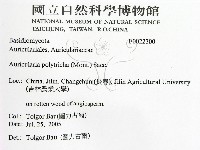 國立自然科學博物館
NATIONAL MUSEUM OF NATURAL SCIENCE
TAICHUNG, TAIWAN, R.O.CHINA
Basidiomycota F0022300
Auriculariales, Auriculariaceae
Auricularia polytricha (Mont.) Sacc.
Loc.: China, Jilin, Changchun (長春), Jilin Agricultural University
(吉林農業大學)
on rotten wood of angiosperm.
Col.: Tolgor Bau (圖力古爾)
Date: Jul. 25, 2005
Det.: Tolgor Bau (圖力古爾)